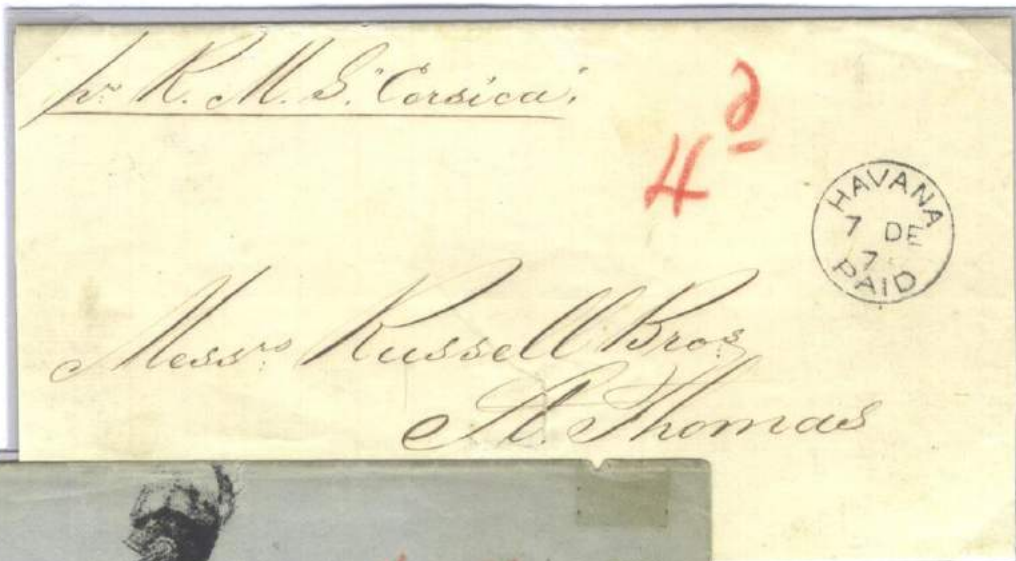 pr. R. M. S. "Corsica".
4d
HAVANA
7 DE
7
PAID
Messrs. Russell Bros.
St. Thomas